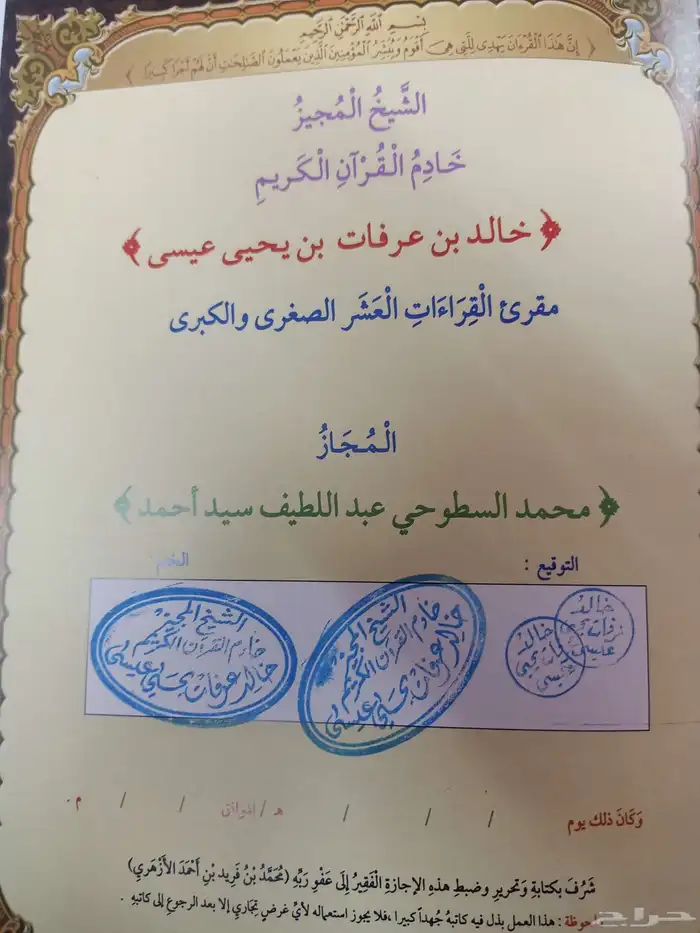 بِسْمِ اللَّهِ الرَّحْمَنِ الرَّحِيمِ
﴿ إِنَّ هَذَا الْقُرْءَانَ يَهْدِى لِلَّتِى هِىَ أَقْوَمُ وَيُبَشِّرُ الْمُؤْمِنِينَ الَّذِينَ يَعْمَلُونَ الصَّلِحَتِ أَنَّ لَهُمْ أَجْرًا كَبِيرًا ﴾
الشَّيخُ الْمُجيزُ
خَادِمُ الْقُرْآنِ الْكَرِيمِ
﴿ خالد بن عرفات بن يحيى عيسى ﴾
مقرئ الْقِرَاءَاتِ الْعَشَر الصغرى والكبرى
الْمُجَازُ
﴿ محمد السطوحي عبد اللطيف سيد أحمد ﴾
التوقيع : الختم
الشيخ المجيز
خادم القرآن الكريم
خالد عرفات يحيى عيسى
الشيخ المجيز
خادم القرآن الكريم
خالد عرفات يحيى عيسى
خالد
عرفات يحيى
عيسى
خالد
عرفات يحيى
عيسى
وَكَانَ ذلك يوم / / / هـ / الموافق / / م.
شَرُفَ بكتابةِ وَتحريرِ وضبطِ هذهِ الإجازةِ الْفَقِيرُ إلَى عَفْوِ رَبِّهِ (مُحَمَّدُ بْنُ فَرِيد بْنِ أَحْمَدَ الأَزْهَرِي)
ملحوظة : هذا العمل بذل فيه كاتبهُ جُهداً كبيرا ،فلا يجوز استعماله لأيِّ غرضٍ تِجَاري إلا بعد الرجوعِ إلى كاتبهِ .
حراج